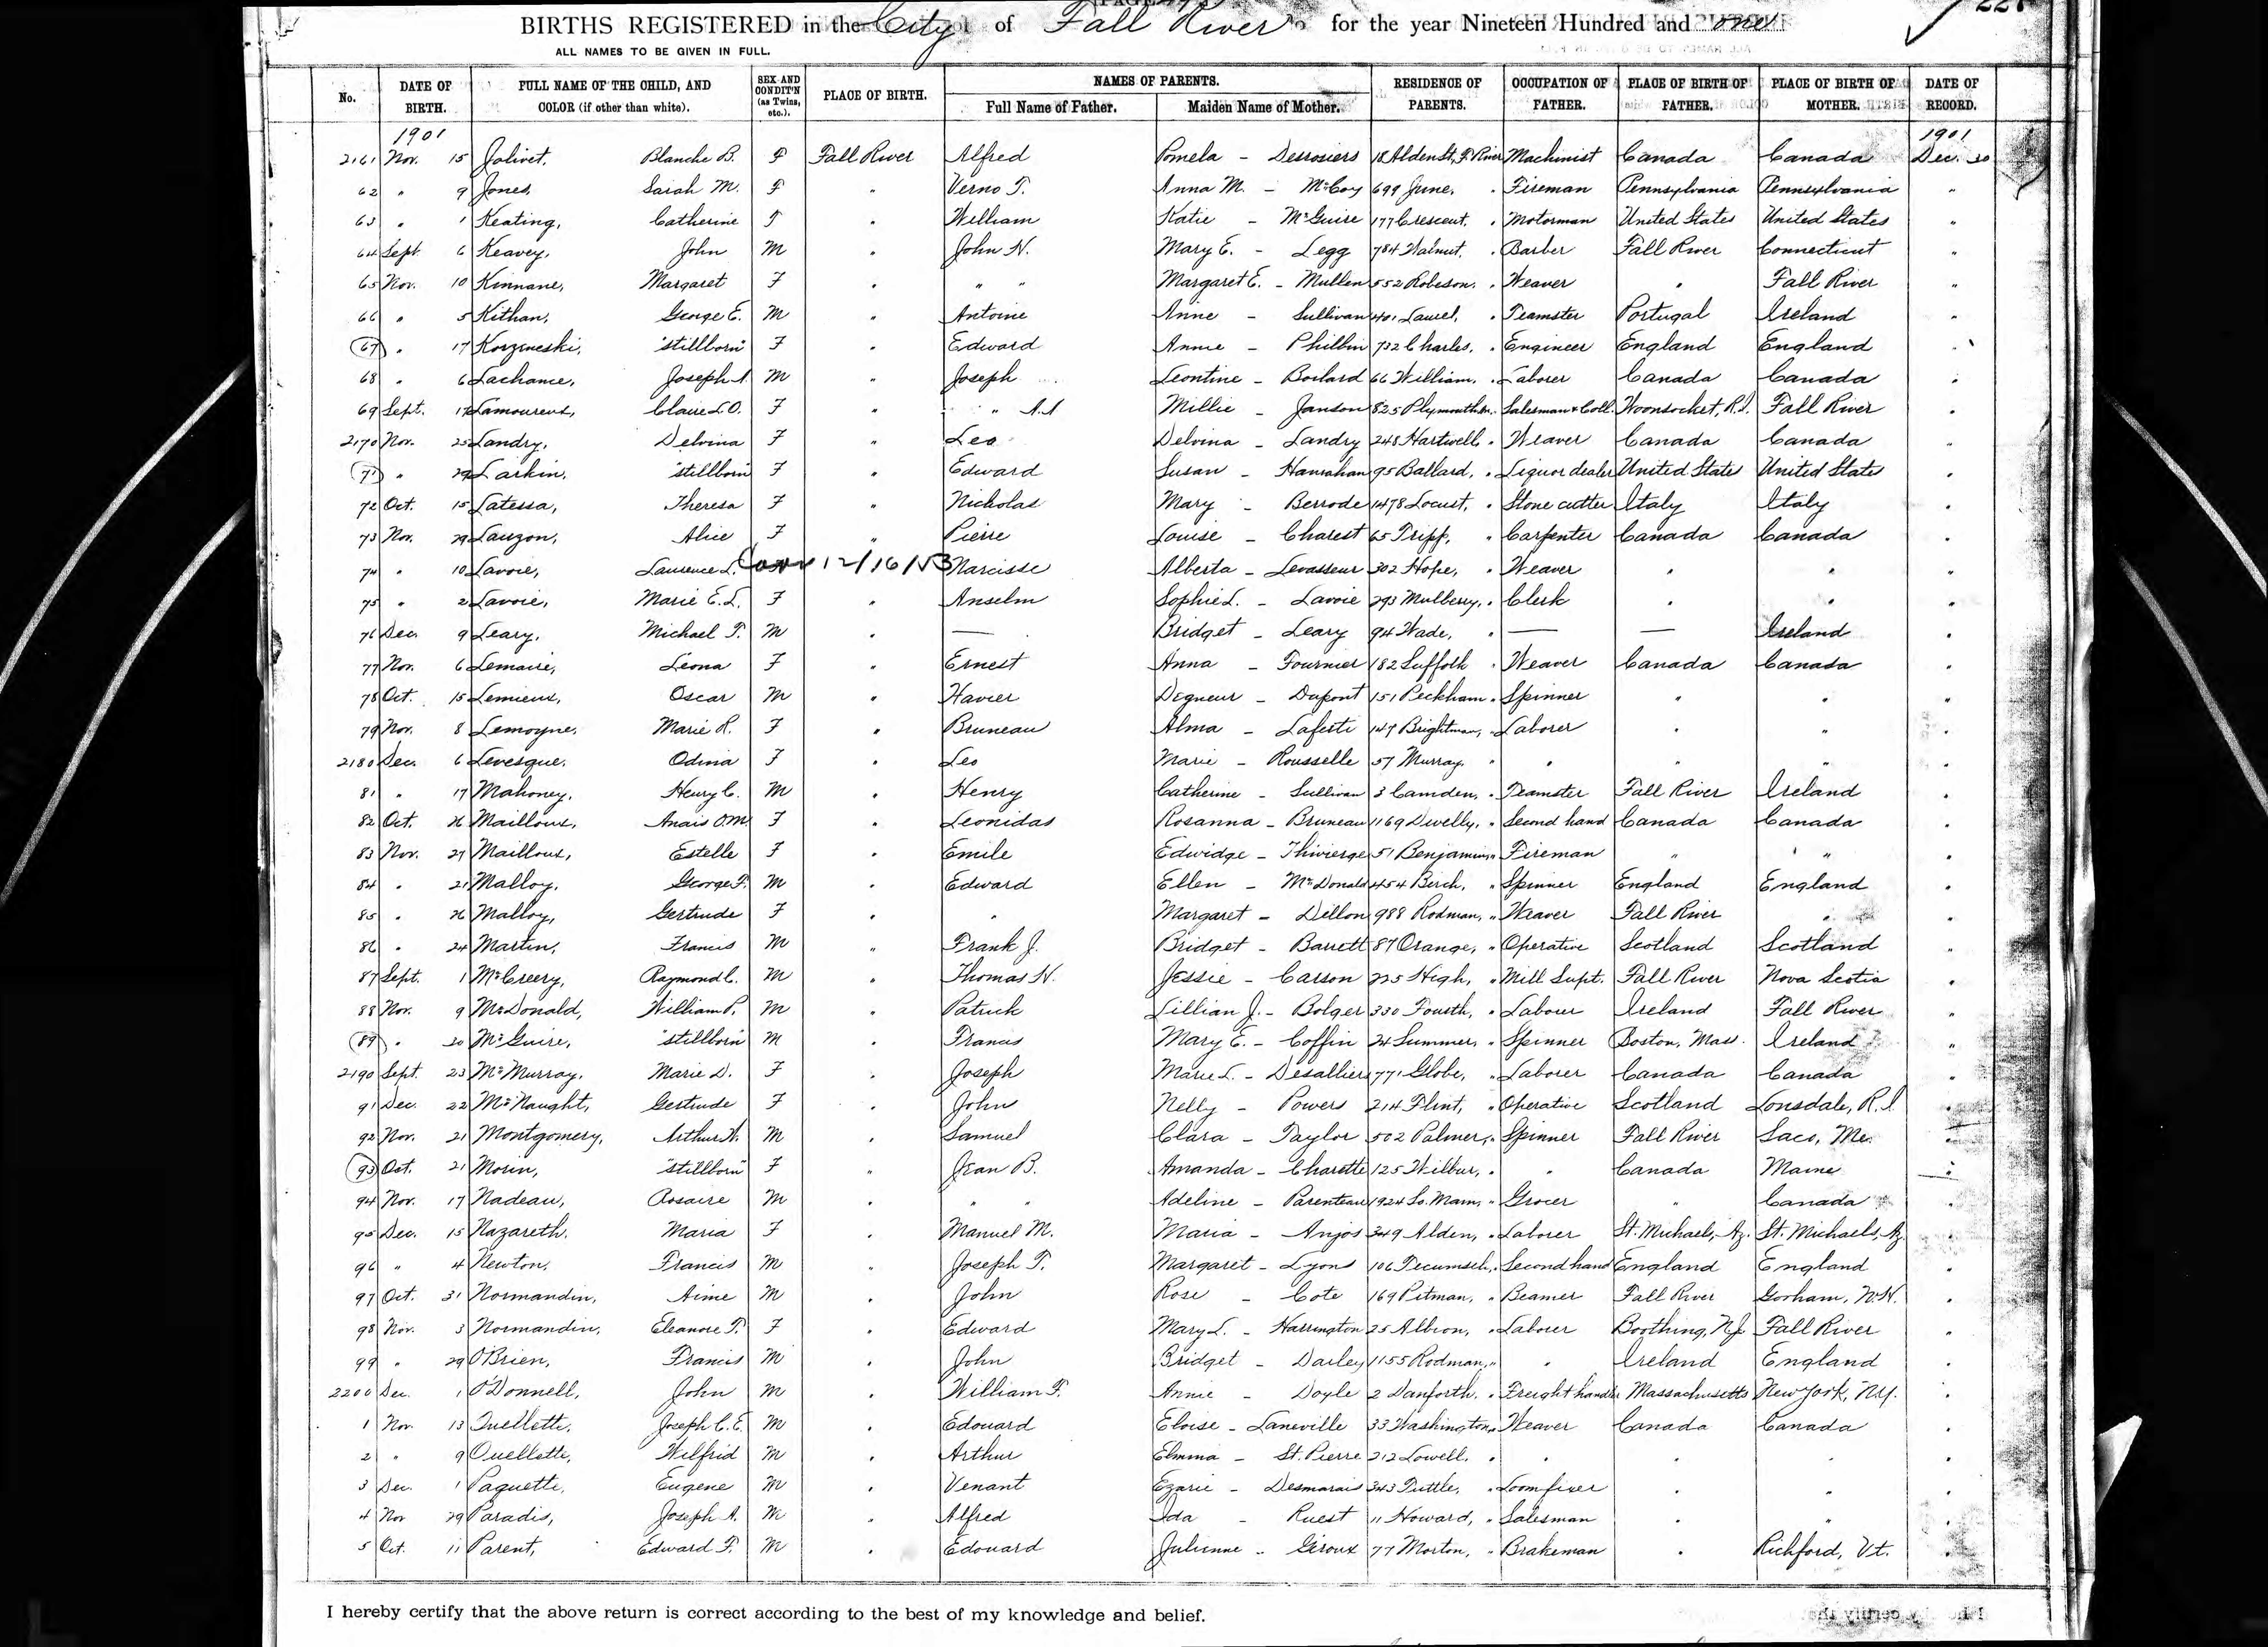 BIRTHS REGISTERED in the City of Fall River for the year Nineteen Hundred and one
ALL NAMES TO BE GIVEN IN FULL.
No. DATE OF BIRTH. FULL NAME OF THE CHILD, AND COLOR (if other than white). SEX AND CONDIT'N (as Twins, etc.). PLACE OF BIRTH. NAMES OF PARENTS. Full Name of Father. Maiden Name of Mother. RESIDENCE OF PARENTS. OCCUPATION OF FATHER. PLACE OF BIRTH OF FATHER. PLACE OF BIRTH OF MOTHER. DATE OF RECORD.
1901 1901
2161 Nov. 15 Jolivet, Blanche B. F Fall River Alfred Pomela - Desrosiers 18 Alden St, F. River Machinist Canada Canada Dec. 30
62 " 9 Jones, Sarah M. F " Verno T. Anna M. - McCoy 699 June, " Fireman Pennsylvania Pennsylvania "
63 " 1 Keating, Catherine F " William Katie - McGuire 177 Crescent, " Motorman United States United States "
64 Sept. 6 Keavey, John M " John H. Mary E. - Legg 784 Walnut, " Barber Fall River Connecticut "
65 Nov. 10 Kinnane, Margaret F " " " Margaret E. - Mullen 552 Robeson, " Weaver " Fall River "
66 " 5 Kithan, George E. M " Antoine Anne - Sullivan 401 Laurel, " Teamster Portugal Ireland "
67 " 17 "stillborn" F " Edward Annie - Philbin 732 Charles, " Engineer England England "
68 " 6 Lachance, Joseph A. M " Joseph Leontine - 66 William, " Laborer Canada Canada "
69 Sept. 17 Lamoureux, Claire L.O. F " " A.A. Millie - Janson 825 Plymouth " Salesman & Coll. Woonsocket, R.I. Fall River "
2170 Nov. 25 Landry, Delvina F " Leo Delvina - Landry 248 Hartwell " Weaver Canada Canada "
71 " 29 Larkin, "stillborn" F " Edward Susan - Hanrahan 95 Ballard, " Liquor dealer United States United States "
72 Oct. 15 Latessa, Theresa F " Nicholas Mary - Berrode 1478 Locust, " Stone cutter Italy Italy "
73 Nov. 29 Lauzon, Alice F " Pierre Louise - Charest 65 Tripp, " Carpenter Canada Canada "
74 " 10 Lavoie, Laurence L. Corr 12/16/53 Narcisse Alberta - Levasseur 302 Hope, " Weaver " " "
75 " 2 Lavoie, Marie E.L. F " Anselm Sophie L. - Lavoie 293 Mulberry, " Clerk " " "
76 Dec. 9 Leary, Michael F. M " — Bridget - Leary 94 Wade, " — — Ireland "
77 Nov. 6 Lemaire, Leona F " Ernest Anna - Fournier 182 Suffolk " Weaver Canada Canada "
78 Oct. 15 Lemieux, Oscar M " Havier - Dupont 151 Peckham " Spinner " " "
79 Nov. 8 Lemoyne, Marie R. F " Bruneau Alma - 147 Brightman, " Laborer " " "
2180 Dec. 6 Levesque, Odina F " Leo Marie - Rousselle 57 Murray, " " " " "
81 " 17 Mahoney, Henry C. M " Henry Catherine - Sullivan 3 Camden, " Teamster Fall River Ireland "
82 Oct. 26 Mailloux, Anais O.M. F " Leonidas Rosanna - Bruneau 1169 Dwelly, " Second hand Canada Canada "
83 Nov. 27 Mailloux, Estelle F " Emile Edwidge - Thivierge 51 Benjamin, " Fireman " " "
84 " 21 Malloy, George F. M " Edward Ellen - McDonald 454 Birch, " Spinner England England "
85 " 26 Malloy, Gertrude F " " Margaret - Dillon 988 Rodman, " Weaver Fall River " "
86 " 24 Martin, Francis M " Frank J. Bridget - Barrett 87 Orange, " Operative Scotland Scotland "
87 Sept. 1 McCreery, Raymond C. M " Thomas H. Jessie - Carson 225 High, " Mill Supt. Fall River Nova Scotia "
88 Nov. 9 McDonald, William P. M " Patrick Lillian J. - Bolger 330 Fourth, " Laborer Ireland Fall River "
89 " 20 McGuire, "stillborn" M " Francis Mary E. - Coffin 24 Summer, " Spinner Boston, Mass. Ireland "
2190 Sept. 23 McMurray, Marie D. F " Joseph Marie L. - Desalliers 771 Globe, " Laborer Canada Canada "
91 Dec. 22 McNaught, Gertrude F " John Nelly - Powers 214 Flint, " Operative Scotland Lonsdale, R.I. "
92 Nov. 21 Montgomery, Arthur W. M " Samuel Clara - Taylor 502 Palmer, " Spinner Fall River Saco, Me. "
93 Oct. 21 Morin, "stillborn" F " Jean B. Amanda - Charette 125 Wilbur, " " Canada Maine "
94 Nov. 17 Nadeau, Rosaire M " " " Adeline - Parenteau 1924 So. Main, " Grocer " Canada "
95 Dec. 15 Nazareth, Maria F " Manuel M. Maria - Anjos 349 Alden, " Laborer St. Michaels, Az. St. Michaels, Az. "
96 " 4 Newton, Francis M " Joseph T. Margaret - Lyons 106 Tecumseh, " Second hand England England "
97 Oct. 31 Normandin, Aime M " John Rose - Cote 169 Pitman, " Beamer Fall River Gorham, N.H. "
98 Nov. 3 Normandin, Eleanore T. F " Edward Mary L. - Harrington 25 Albion, " Laborer Fall River "
99 " 29 O'Brien, Francis M " John Bridget - Darley 1155 Rodman, " " Ireland England "
2200 Dec. 1 O'Donnell, John M " William F. Annie - Doyle 2 Danforth, " Freight handler Massachusetts New York, N.Y. "
1 Nov. 13 Ouellette, Joseph C.E. M " Edouard Eloise - Laneville 33 Washington, " Weaver Canada Canada "
2 " 9 Ouellette, Wilfrid M " Arthur Elmina - St. Pierre 212 Lowell, " " " " "
3 Dec. 1 Paquette, Eugene M " Venant Ezarie - Desmarais 343 Tuttle, " Loomfixer " " "
4 Nov 29 Paradis, Joseph A. M " Alfred Ida - Ruest 11 Howard, " Salesman " " "
5 Oct. 11 Parent, Edward F. M " Edouard Julienne - Giroux 77 Morton, " Brakeman " Richford, Vt. "
I hereby certify that the above return is correct according to the best of my knowledge and belief.